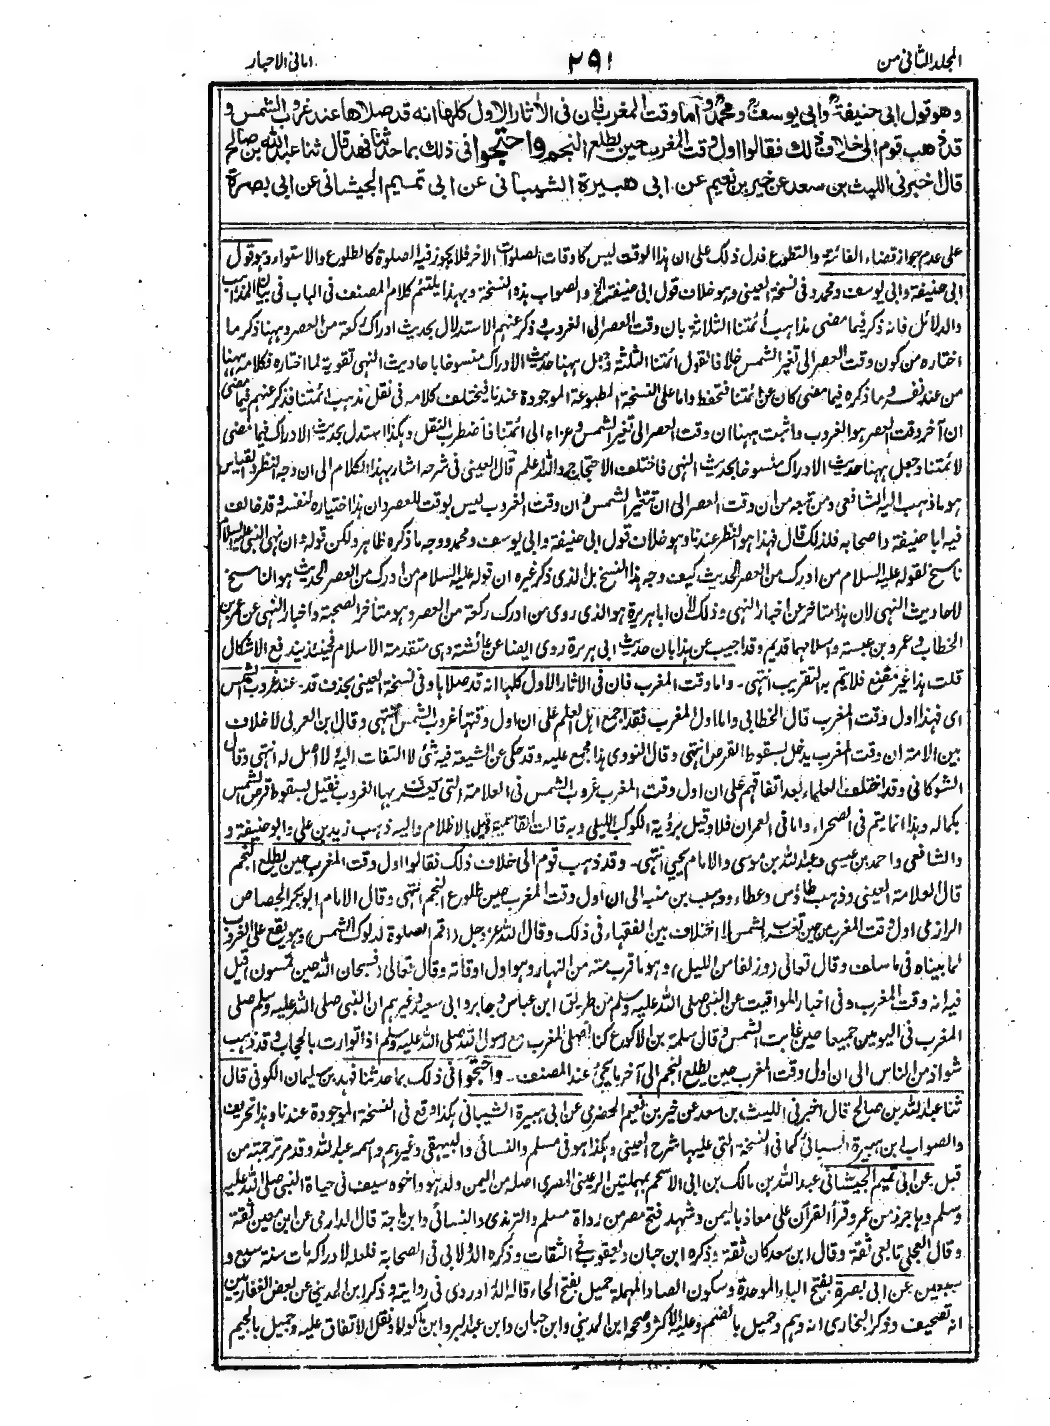 المجلد الثانى من
۲۹۱
امانى الاحبار
وهو قول ابى حنيفة وابى يوسف ومحمد واما وقت المغرب فان فى الآثار الاول كلها انه قد صلاها عند غروب الشمس و
قد ذهب قوم الى خلاف ذلك فقالوا اول وقت المغرب حين يطلع النجم واحتجوا فى ذلك بما حدثنا فهد قال ثنا عبد الله بن صالح
قال اخبرنى الليث بن سعد عن خير بن نعيم عن ابى هبيرة الشيبانى عن ابى تميم الجيشانى عن ابى بصرة
على عدم جواز قضاء الفائتة والتطوع فدل ذلك على ان هذا الوقت ليس كاوقات الصلوات الاخر فلا يجوز فيه الصلوة كالطلوع والاستواء وهو قول
ابى حنيفة وابى يوسف ومحمد وفى نسخة العينى وهو خلاف قول ابى حنيفة الخ والصواب هذه النسخة وبهذا يلتئم كلام المصنف فى الباب فى بيان المذاهب
والدلائل فانه ذكر فيما مضى مذاهب أئمتنا الثلاثة بان وقت العصر الى الغروب وذكر عنهم الاستدلال بحديث ادراك ركعة من العصر وههنا ذكر ما
اختاره من كون وقت العصر الى تغير الشمس خلافا لقول ائمتنا الثلثة وجعل ههنا حديث الادراك منسوخا باحاديث النهى تقوية لما اختاره فكلامه ههنا
من عند نفسه وما ذكره فيما مضى كان عن ائمتنا فتحفظ واما على النسخة المطبوعة الموجودة عندنا فيختلف كلامه فى نقل مذهب ائمتنا فذكر عنهم فيما مضى
ان آخر وقت العصر هو الغروب واثبت ههنا ان وقت العصر الى تغير الشمس وعزاه الى ائمتنا فاضطرب النقل وهكذا استدل بحديث الادراك فيما مضى
لائمتنا وجعل ههنا حديث الادراك منسوخا بحديث النهى فاختلف الاحتجاج والله اعلم قال العينى فى شرحه اشار بهذا الكلام الى ان وجه النظر والقياس
هو ما ذهب اليه الشافعى ومن تبعه من ان وقت العصر الى ان تتغير الشمس وان وقت الغروب ليس بوقت للعصر وان هذا اختياره لنفسه وقد خالف
فيه ابا حنيفة واصحابه فلذلك قال فهذا هو النظر عندنا وهو خلاف قول ابى حنيفة وابى يوسف ومحمد ووجه ما ذكره ظاهر ولكن قوله وان نهى النبى عليه السلام
ناسخ لقوله عليه السلام من ادرك من العصر الحديث كيف وجه هذا النسخ بل الذى ذكر غيره ان قوله عليه السلام من ادرك من العصر الحديث هو الناسخ
لاحاديث النهى لان هذا متاخر عن اخبار النهى وذلك لأن ابا هريرة هو الذى روى من ادرك ركعة من العصر وهو متاخر الصحبة واخبار النهى عن عمر بن
الخطاب وعمرو بن عبسة واسلامهما قديم وقد اجيب عن هذا بان حديث ابى هريرة روى ايضا عن عائشة وهى متقدمة الاسلام فحينئذ يندفع الاشكال
قلت هذا غير مقنع فلا يتم به التقريب انتهى - واما وقت المغرب فان فى الآثار الاول كلها انه قد صلاها وفى نسخة العينى بحذف قد - عند غروب الشمس
اى فهذا اول وقت المغرب قال الخطابى واما اول المغرب فقد اجمع اهل العلم على ان اول وقتها غروب الشمس انتهى وقال ابن العربى لا خلاف
بين الامة ان وقت المغرب يدخل بسقوط القرص انتهى وقال النووى هذا مجمع عليه وقد حكى عن الشيعة فيه شئ لا التفات اليه ولا اصل له انتهى وقال
الشوكانى وقد اختلف العلماء بعد اتفاقهم على ان اول وقت المغرب غروب الشمس فى العلامة التى يعرف بها الغروب فقيل بسقوط قرص الشمس
بكماله وهذا انما يتم فى الصحراء واما فى العمران فلا وقيل برؤية الكوكب الليلى وبه قالت القاسمية وقيل بالاظلام واليه ذهب زيد بن على وابو حنيفة و
والشافعى واحمد بن عيسى وعبد الله بن موسى والامام يحيى انتهى - وقد ذهب قوم الى خلاف ذلك فقالوا اول وقت المغرب حين يطلع النجم
قال العلامة العينى وذهب طاؤس وعطاء ووهب بن منبه الى ان اول وقت المغرب حين طلوع النجم انتهى وقال الامام ابوبكر الجصاص
الرازى اول وقت المغرب من حين تغرب الشمس لا اختلاف بين الفقهاء فى ذلك وقال الله عز وجل (اقم الصلوة لدلوك الشمس) وهو يقع على الغروب
لما بيناه فى ما سلف وقال تعالى (وزلفا من الليل) وهو ما قرب منه من النهار وهو اول اوقاته وقال تعالى (فسبحان الله حين تمسون) قيل
فيه انه وقت المغرب وفى اخبار المواقيت عن النبى صلى الله عليه وسلم من طريق ابن عباس وجابر وابى سعيد وغيرهم ان النبى صلى الله عليه وسلم صلى
المغرب فى اليومين جميعا حين غابت الشمس وقال سلمة بن الاكوع كنا نصلى المغرب مع رسول الله صلى الله عليه وسلم اذا توارت بالحجاب وقد ذهب
شواذ من الناس الى ان اول وقت المغرب حين يطلع النجم الى آخر ما يجئ عند المصنف - واحتجوا فى ذلك بما حدثنا فهد بن سليمان الكوفى قال
ثنا عبد الله بن صالح قال اخبرنى الليث بن سعد عن خير بن نعيم الحضرمى عن ابى هبيرة الشيبانى هكذا وقع فى النسخة الموجودة عندنا وهذا تحريف
والصواب ابن هبيرة السبائى كما فى النسخة التى عليها شرح العينى وهكذا هو فى مسلم والنسائى والبيهقى وغيرهم واسمه عبد الله وقد مر ترجمته من
قبل - عن ابى تميم الجيشانى عبد الله بن مالك بن ابى الاسحم بمهملتين الرعينى المصرى اصله من اليمن ولد هو واخوه سيف فى حياة النبى صلى الله عليه
وسلم وهاجر زمن عمر وقرأ القرآن على معاذ باليمن وشهد فتح مصر من رواة مسلم والترمذى والنسائى وابن ماجة قال الدارمى عن ابن معين ثقة
وقال العجلى تابعى ثقة وقال ابن سعد كان ثقة وذكره ابن حبان ويعقوب فى الثقات وذكره الدولابى فى الصحابة فلعله لادراكه مات سنة سبع و
سبعين - عن ابى بصرة بفتح الباء الموحدة وسكون الصاد المهملة جميل بفتح الحاء قاله الداروردى فى روايته وذكر ابن المدينى عن بعض الغفاريين
انه تصحيف وذكر البخارى انه وهم وحميل بالضم وعليه الاكثر وصححه ابن المدينى وابن حبان وابن عبد البر وابن ماكولا ونقل الاتفاق عليه وجميل بالجيم